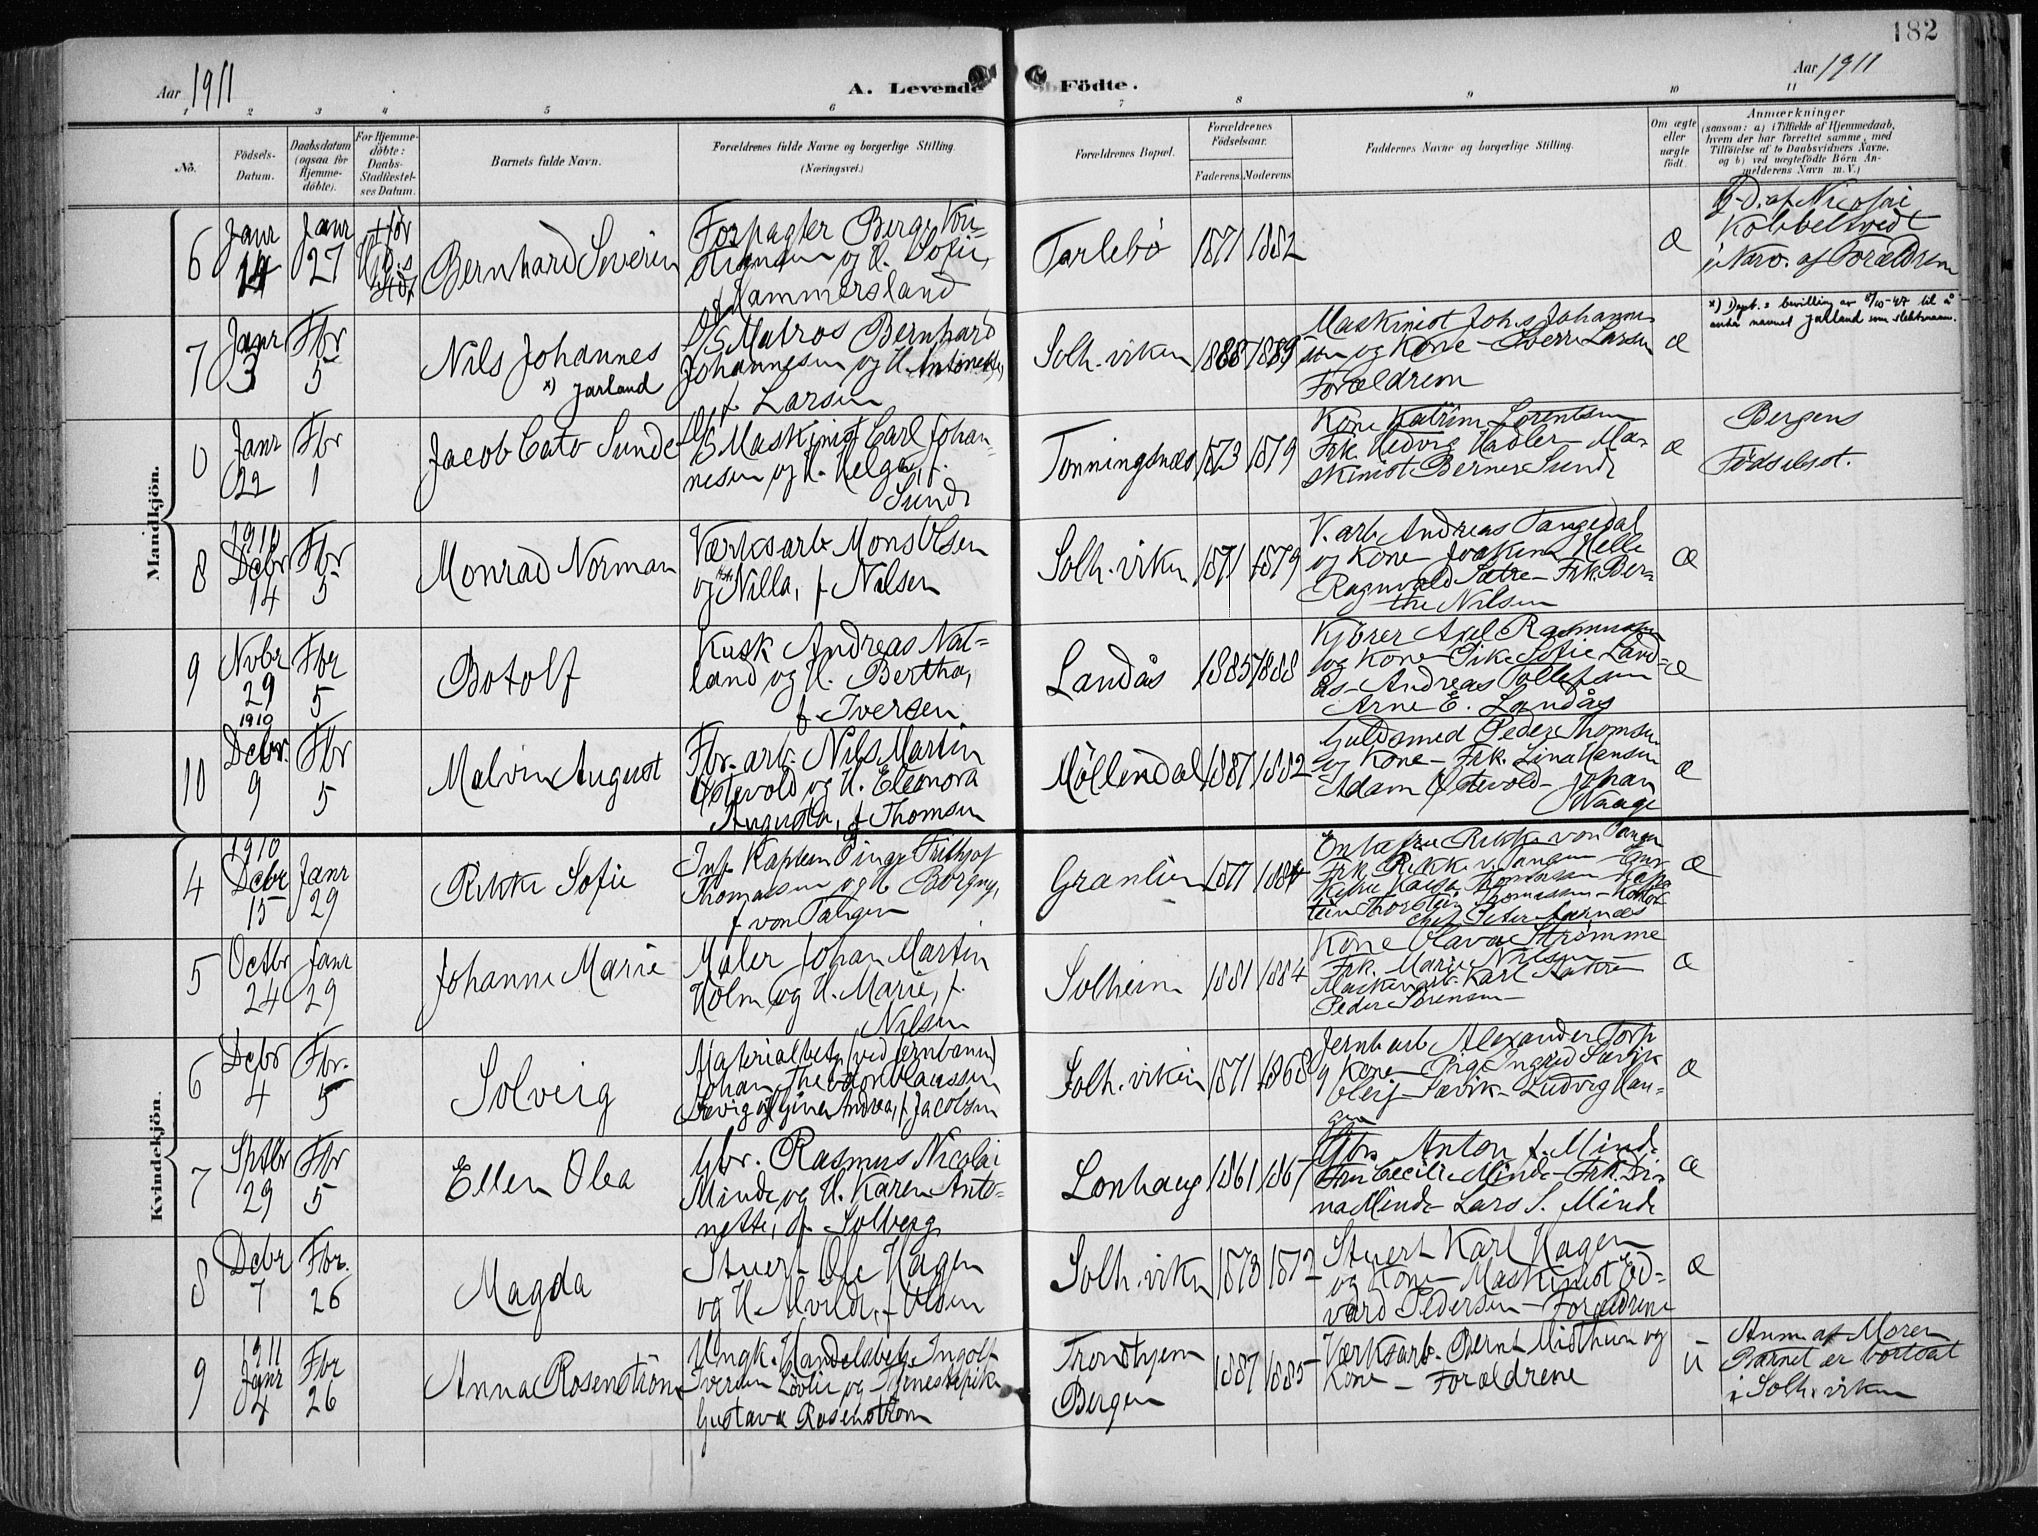 182
Aar 1911
A. Levende Födte.
Aar 1911
1 2 3 4 5 6 7 8 9 10 11
No.
Födsels-
Datum.
Daabsdatum
(ogsaa for
Hjemme-
döbte).
For Hjemme-
döbte:
Daabs-
Stadfæstel-
ses Datum.
Barnets fulde Navn.
Forældrenes fulde Navne og borgerlige Stilling.
(Næringsvei.)
Forældrenes Bopæl.
Forældrenes
Födselsaar.
Faderens. Moderens.
Faddernes Navne og borgerlige Stilling.
Om ægte
eller
uægte
födt.
Anmærkninger
(saasom: a) i Tilfælde af Hjemmedaab,
hvem der har forrettet samme, med
Tilföielse af to Daabsvidners Navne,
og b) ved uægtefödte Börn An-
melderens Navn m. V.)
Mandkjön.
6
Janr
14
Janr
27
Bernhard Severin
Forpagter Berge Kri-
stensen og H. Sofie,
f. Hammersland
Tarlebø
1871
1882
æ
H-D. af Nicolai
Kobbeltvedt
i Nærv. af Forældrene
7
Janr
3
Fbr
5
Nils Johannes
x) Jarland
D/S Matros Bernhard
Johannesen og H. Antonette,
f. Larsen
Solh. viken
1888
1889
Maskinist Johs Johanne-
sen og Kone - Sverre Larsen
Forældrene
æ
x) Dept.s bevilling av 8/10-47 til å
anta navnet Jarland som slektsnavn.
0
Janr
22
Fbr
1
Jacob Cato Sunde
D/S Maskinist Carl Johan-
nesen og H. Helga, f.
Sunde
Tonningsnæs
1873
1879
Kone Katrine Lorentsen
Frk. Hedvig Hadler - Ma-
skinist Berner Sunde
æ
Bergens
Fødselsst.
8
1910
Dcbr
14
Fbr
5
Monrad Norman
Værksarb. Mons Olsen
og H. Nilla, f. Nilsen
Solh. viken
1871
1879
V. arb. Andreas Tangedal
og Kone - Joakim Helle
Ragnvald Sætre - Frk. Ber-
the Nilsen
æ
9
Nvbr
29
Fbr
5
Botolf
Kusk Andreas Nat-
land og H. Bertha,
f. Iversen
Landås
1885
1888
Kjører Axel Rasmussen
og Kone - Pike Sofie Land-
ås - Andreas Tollefsen
Arne E. Landås
æ
10
1910
Dcbr.
9
Fbr
5
Malvin August
Fbr. arb. Nils Martin
Østevold og H. Eleonora
Augusta, f. Thomsen
Møllendal
1887
1882
Guldsmed Peder Thomsen
og Kone - Frk. Lina Hansen
Adam Østevold - Johan
Waage
æ
Kvindekjön.
4
1910
Dcbr
15
Janr
29
Rikke Sofie
Inf. Kaptein Tinge Frithjof
Thomassen og H. Borgny,
f. von Tangen
Granlien
1877
1884
Enkefru Rikke von Tangen
Frk. Rikke v. Tangen -
Thomassen - Kap-
tein Thorstein Thomassen - Kontor-
chef Peter
æ
5
Octbr
24
Janr
29
Johanne Marie
Maler Johan Martin
Holm og H. Marie, f.
Nilsen
Solheim
1881
1884
Kone Olava Strømme
Frk. Marie Nilsen -
Maskinarb. Karl
Peder Sørensen -
æ
6
Dcbr
4
Fbr.
5
Solveig
Materialbetj. (ved Jernbanen)
Johan Theodor Claussen
Sævig og H. Gina Andrea, f. Jacobsen
Solh. viken
1871
1868
Jernb. arb. Alexander Torp
og Kone - Pige Ingrid Sævik
Oleij Sævik - Ludvig Hau-
gen
æ
7
Sptbr
29
Fbr
5
Ellen Olea
Gbr. Rasmus Nicolai
Minde og H. Karen Anto-
nette, f. Solberg
Lonhaug
1861
1867
Gbr. Anton A. Minde
Fru Cecilie Minde - Frk. Di-
na Minde - Lars S. Minde
æ
8
Dcbr
7
Fbr.
26
Magda
Stuert Ole Hagen
og H. Alvilde, f. Olsen
Solh. viken
1873
1872
Stuert Karl Hagen
og Kone - Maskinist Ed-
vard Pedersen - Forældrene
æ
9
1911
Janr
4
Fbr
26
Anna Rosenström
Ungk. Handelsbetj. Ingolf
Iversen Løvlie og Tjenestepike
Gustava Rosenström
Trondhjem
Bergen
1887
1885
Værksarb. Bernt Misthun og
Kone - Forældrene
u
Anm. af Moren
Barnet er bortsat
i Solh. viken